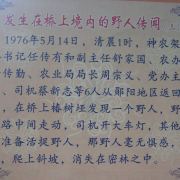 发生在桥上境内的野人传闻
1976年5月14日，清晨1时，神农架
书记任传有和副主任舒家国、农办
传勤、农业局局长周宗义、党办主
、司机蔡新志等6人从郧阳地区返回
，在桥上椿树垭发现一个野人，野
路中间走动，司机开大车灯，其他
准备活捉野人，那野人毫无惧感，
，爬上斜坡，消失在密林之中。